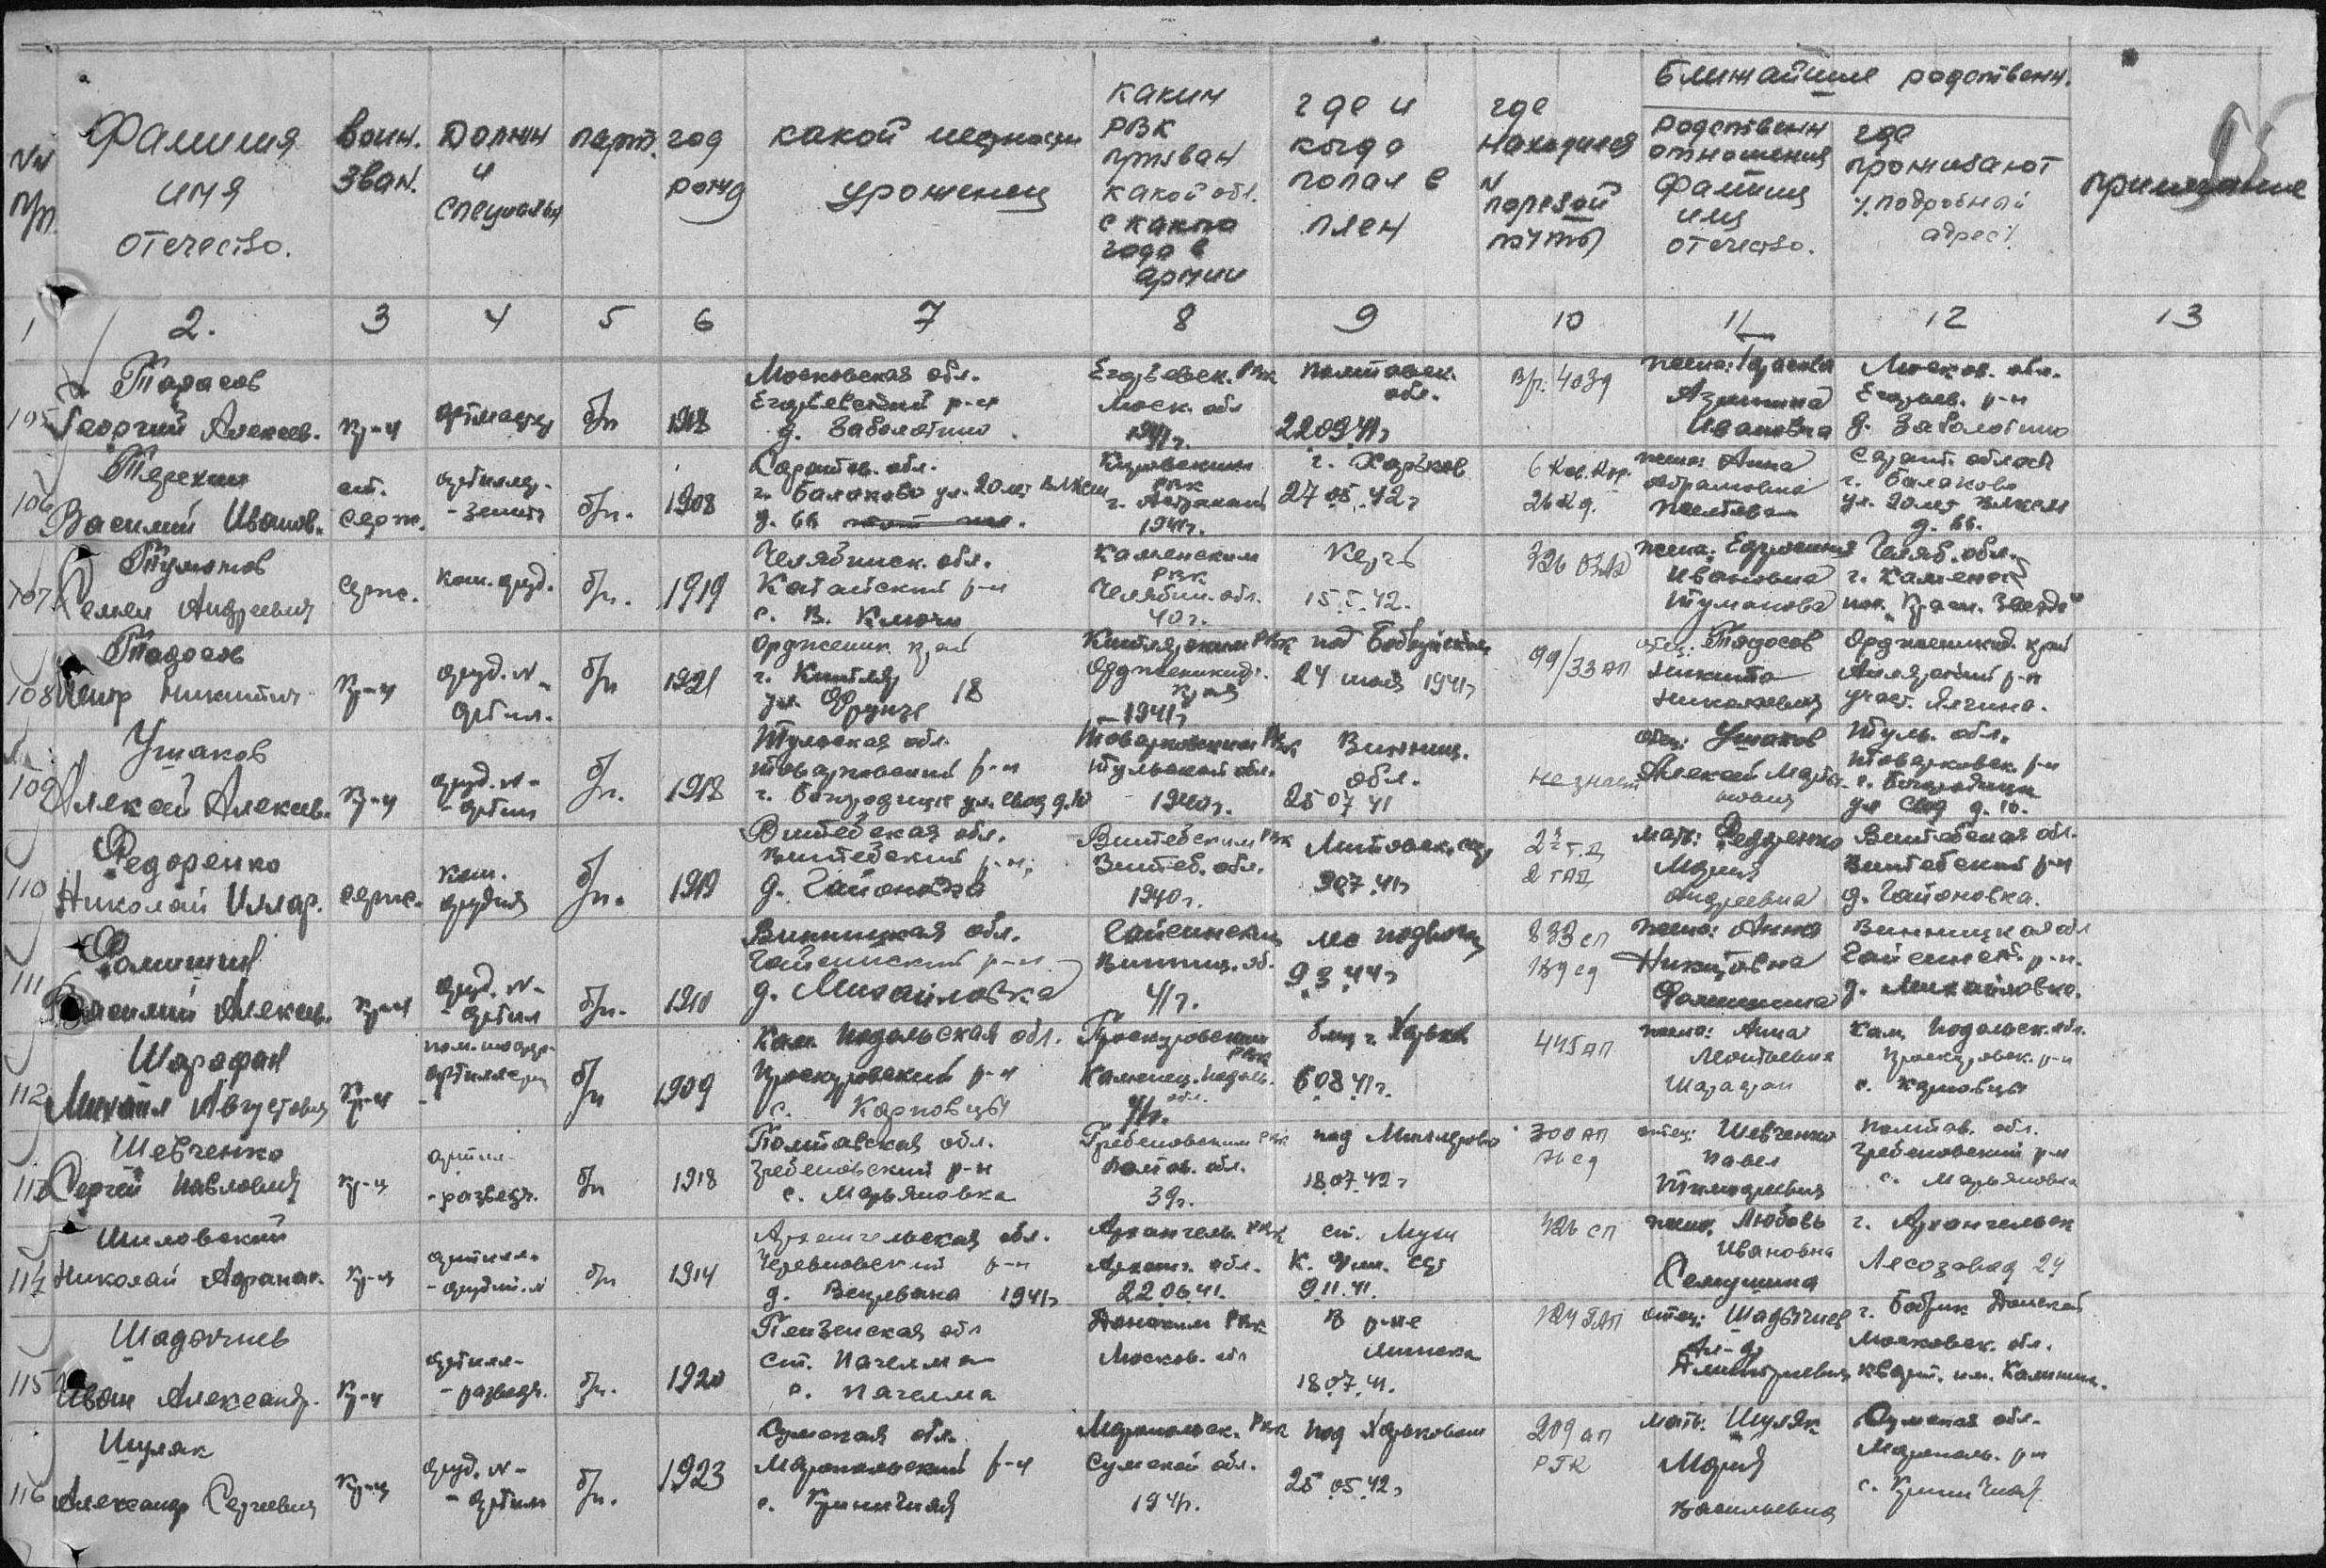 №№ п/п.
Фамилия имя отечество.
воин. зван.
Должн и специальн
парт.
год рожд
какой местности уроженец
каким РВК призван какой обл. с какого года в армии
где и когда попал в плен
где находился
N полевой почты
Ближайшие родственн.
родственн отношения фамилия имя отчество.
где проживают /подробный адрес/
примечание
1 2. 3 4 5 6 7 8 9 10 11 12 13
Тарасов Московская обл. Егорьевск. РВК Полтавск. жена: Тарасова Москов. обл.
105 Георгий Алексев. кр-ц б/п 1918 Егорьевский р-н Моск. обл обл. Ивановна Егорьев. р-н
д. Заболотино 1941г. 22 09 41г д. Заболотино
Терехин ст. артиллер. Саратов. обл. г. Харьков 6 Кав. Кор. жена: Анна Сарат. област
106 Василий Иванов. серж. -зенит б/п. 1908 г. Балаково ул. 20 лет ВЛКСМ РВК 27 05 42г 26 кд. Абрамовна г. Балаково
д. 66 1941г. ул. 20 лет ВЛКСМ д. 66.
Туманов Челябинск. обл. Каменским Керчь жена: Челяб. обл.
107 Семен Андреевич серж. ком. оруд. б/п. 1919 Катайский р-н РВК Челябин. обл. 15.5.42. Ивановна г. Каменск
с. В. Ключи 40г. Туманова пос. Красн. Звезда"
Тадосов Орджоник. край Кизлярским РВК под Бобруйском 99/33 АП отец: Тадосов Орджоникид. край
108 Никитич кр-ц оруд. N- артил. б/п 1921 г. Кизляр Орджоникид. края 24 1941г Никита р-н
ул. Фрунзе 18 1941г Николаевич участ.
Ушаков Тульская обл. Товарковским РВК Винниц. отец: Ушаков Туль. обл.
109 Алексей Алексев. кр-ц оруд. N- -артил б/п. 1918 Товарковский р-н Тульской обл. обл. не знает Алексей Товарковск. р-н
г. Богородицк ул. Свод д. 10 1940г. 25 07 41 г. Богородицк ул Свод д. 10.
Федоренко Витебская обл. Витебским РВК Литовск. ССР 2 т.д мать: Федоренко Витебская обл.
110 Николай Иллар. серж. ком. орудия б/п. 1919 Витебский р-н, Витеб. обл. 9 07 41г 2 ГАП Мария Витебский р-н
д. Гапоновка 1940г. Андреевна д. Гапоновка.
Фомишин Винницкая обл. Гайсинским 983 сп жена: Анна Винницкая обл
111 Василий Алексев. кр-ц оруд. N- -артил б/п. 1910 Гайсинский р-н Винниц. об. 9 3 44г Никитовна Гайсинск. р-н.
д. Михайловка 41г. Фомишина д. Михайловка.
Шарафан Кам. Подольская обл. Проскуровским РВК близ г. Харьков 445 АП жена: Анна Кам. Подольск. обл.
112 Михаил Августович кр-ц артиллери б/п 1909 Проскуровский р-н Каменец. Подоль. обл. 6 08 41г. Проскуровск. р-н
с. Карповцы 41г. Шарафан с. Карповцы
Шевченко Полтавская обл. Гребенковским РВК под Миллерово 300 АП отец: Шевченко Полтав. обл.
113 Сергей Павлович кр-ц артил. -разведч. б/п 1918 Гребенковский р-н Полтав. обл. 18 07 42г 76 сд Павел Гребенковский р-н
с. Марьяновка 39г. Тимофеевич с. Марьяновка
Шиловский Архангельская обл. Архангель. РВК ст. 426 сп жена. Любовь г. Архангельск
114 Николай Афанас. кр-ц артилл. б/п 1914 Черевковский р-н Арханг. обл. К. Фин. ССР Ивановна Лесозавод 24
д. 1941г 22.06.41. 9.11.41. Семушина
Шадычиев Пензенская обл Донским РВК В р-не отец: Шадычиев г. Бобрик Донской
115 Иван Александр. кр-ц артилл- -разведч. б/п. 1920 ст. Пачелма Москов. обл Минска Ал-др Московск. обл.
с. Пачелма 18.07.41. Дмитриевич кварт. им. Калинин.
Шуляк Сумская обл. Миропольск. РВК под Харьковым 209 АП мать: Шуляк Сумская обл.
116 Александр Сергеевич кр-ц оруд. N- -артил б/п. 1923 Миропольский р-н Сумской обл. 25.05.42г РГК Мария Мирополь. р-н
с. Криничная 1941г. Васильевна с. Криничная